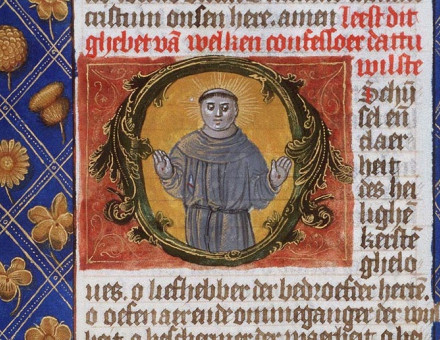 cristum onsen here. amen Leest dit
ghebet vā welken confessoer dattu
wilste
O Schij
sel eñ
daer
heit
des hei
lighē
kerstē
ghelo
ues. o liefhebber der bedroefder hertē
o oefenaer ende ommeganger der
heit. o beschermer der